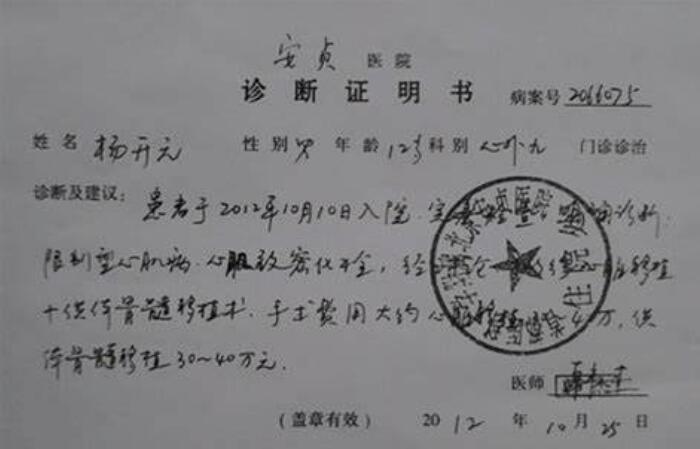 安贞 医院
诊断证明书 病案号 2066075
姓名 杨开元 性别 男 年龄 12岁 科别 心外九 门诊诊治
诊断及建议: 患者于2012年10月10日入院. 完善检查 明确诊断
限制型心肌病. 心肌致密化不全, 心脏移植
+供体骨髓移植术. 手术费用大约心脏移植 万, 供
体骨髓移植30~40万元.
医师
(盖章有效) 2012 年 10 月 25 日